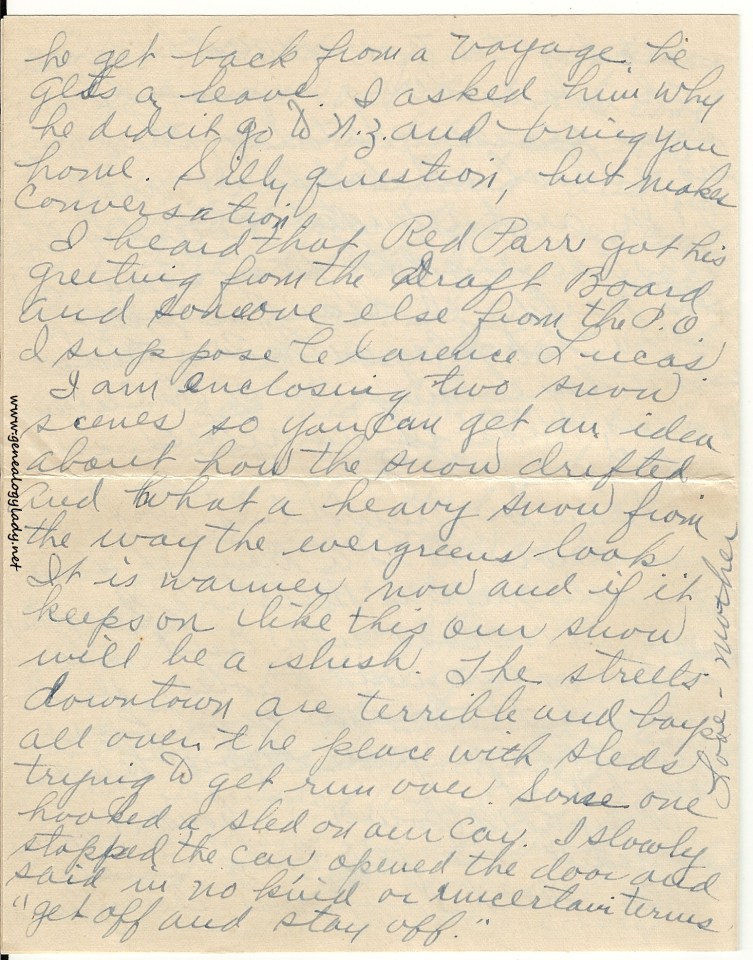 he get back from a voyage he
gets a leave. I asked him why
he didn't go to N.Z. and bring you
home. Silly question, but makes
conversation
I heard that Red Parr got his
greeting from the Draft Board
and someone else from the P.O.
I suppose Clarence Lucas.
I am enclosing two snow
scenes so you can get an idea
about how the snow drifted
and what a heavy snow from
the way the evergreens look
It is warmer now and if it
keeps on like this our snow
will be a slush. The streets
downtown are terrible and boys
all over the place with sleds
trying to get run over. Some one
hooked a sled on our car. I slowly
stopped the car opened the door and
said in no kind or uncertain terms
"get off and stay off."
Love - Mother
www.genealogylady.net